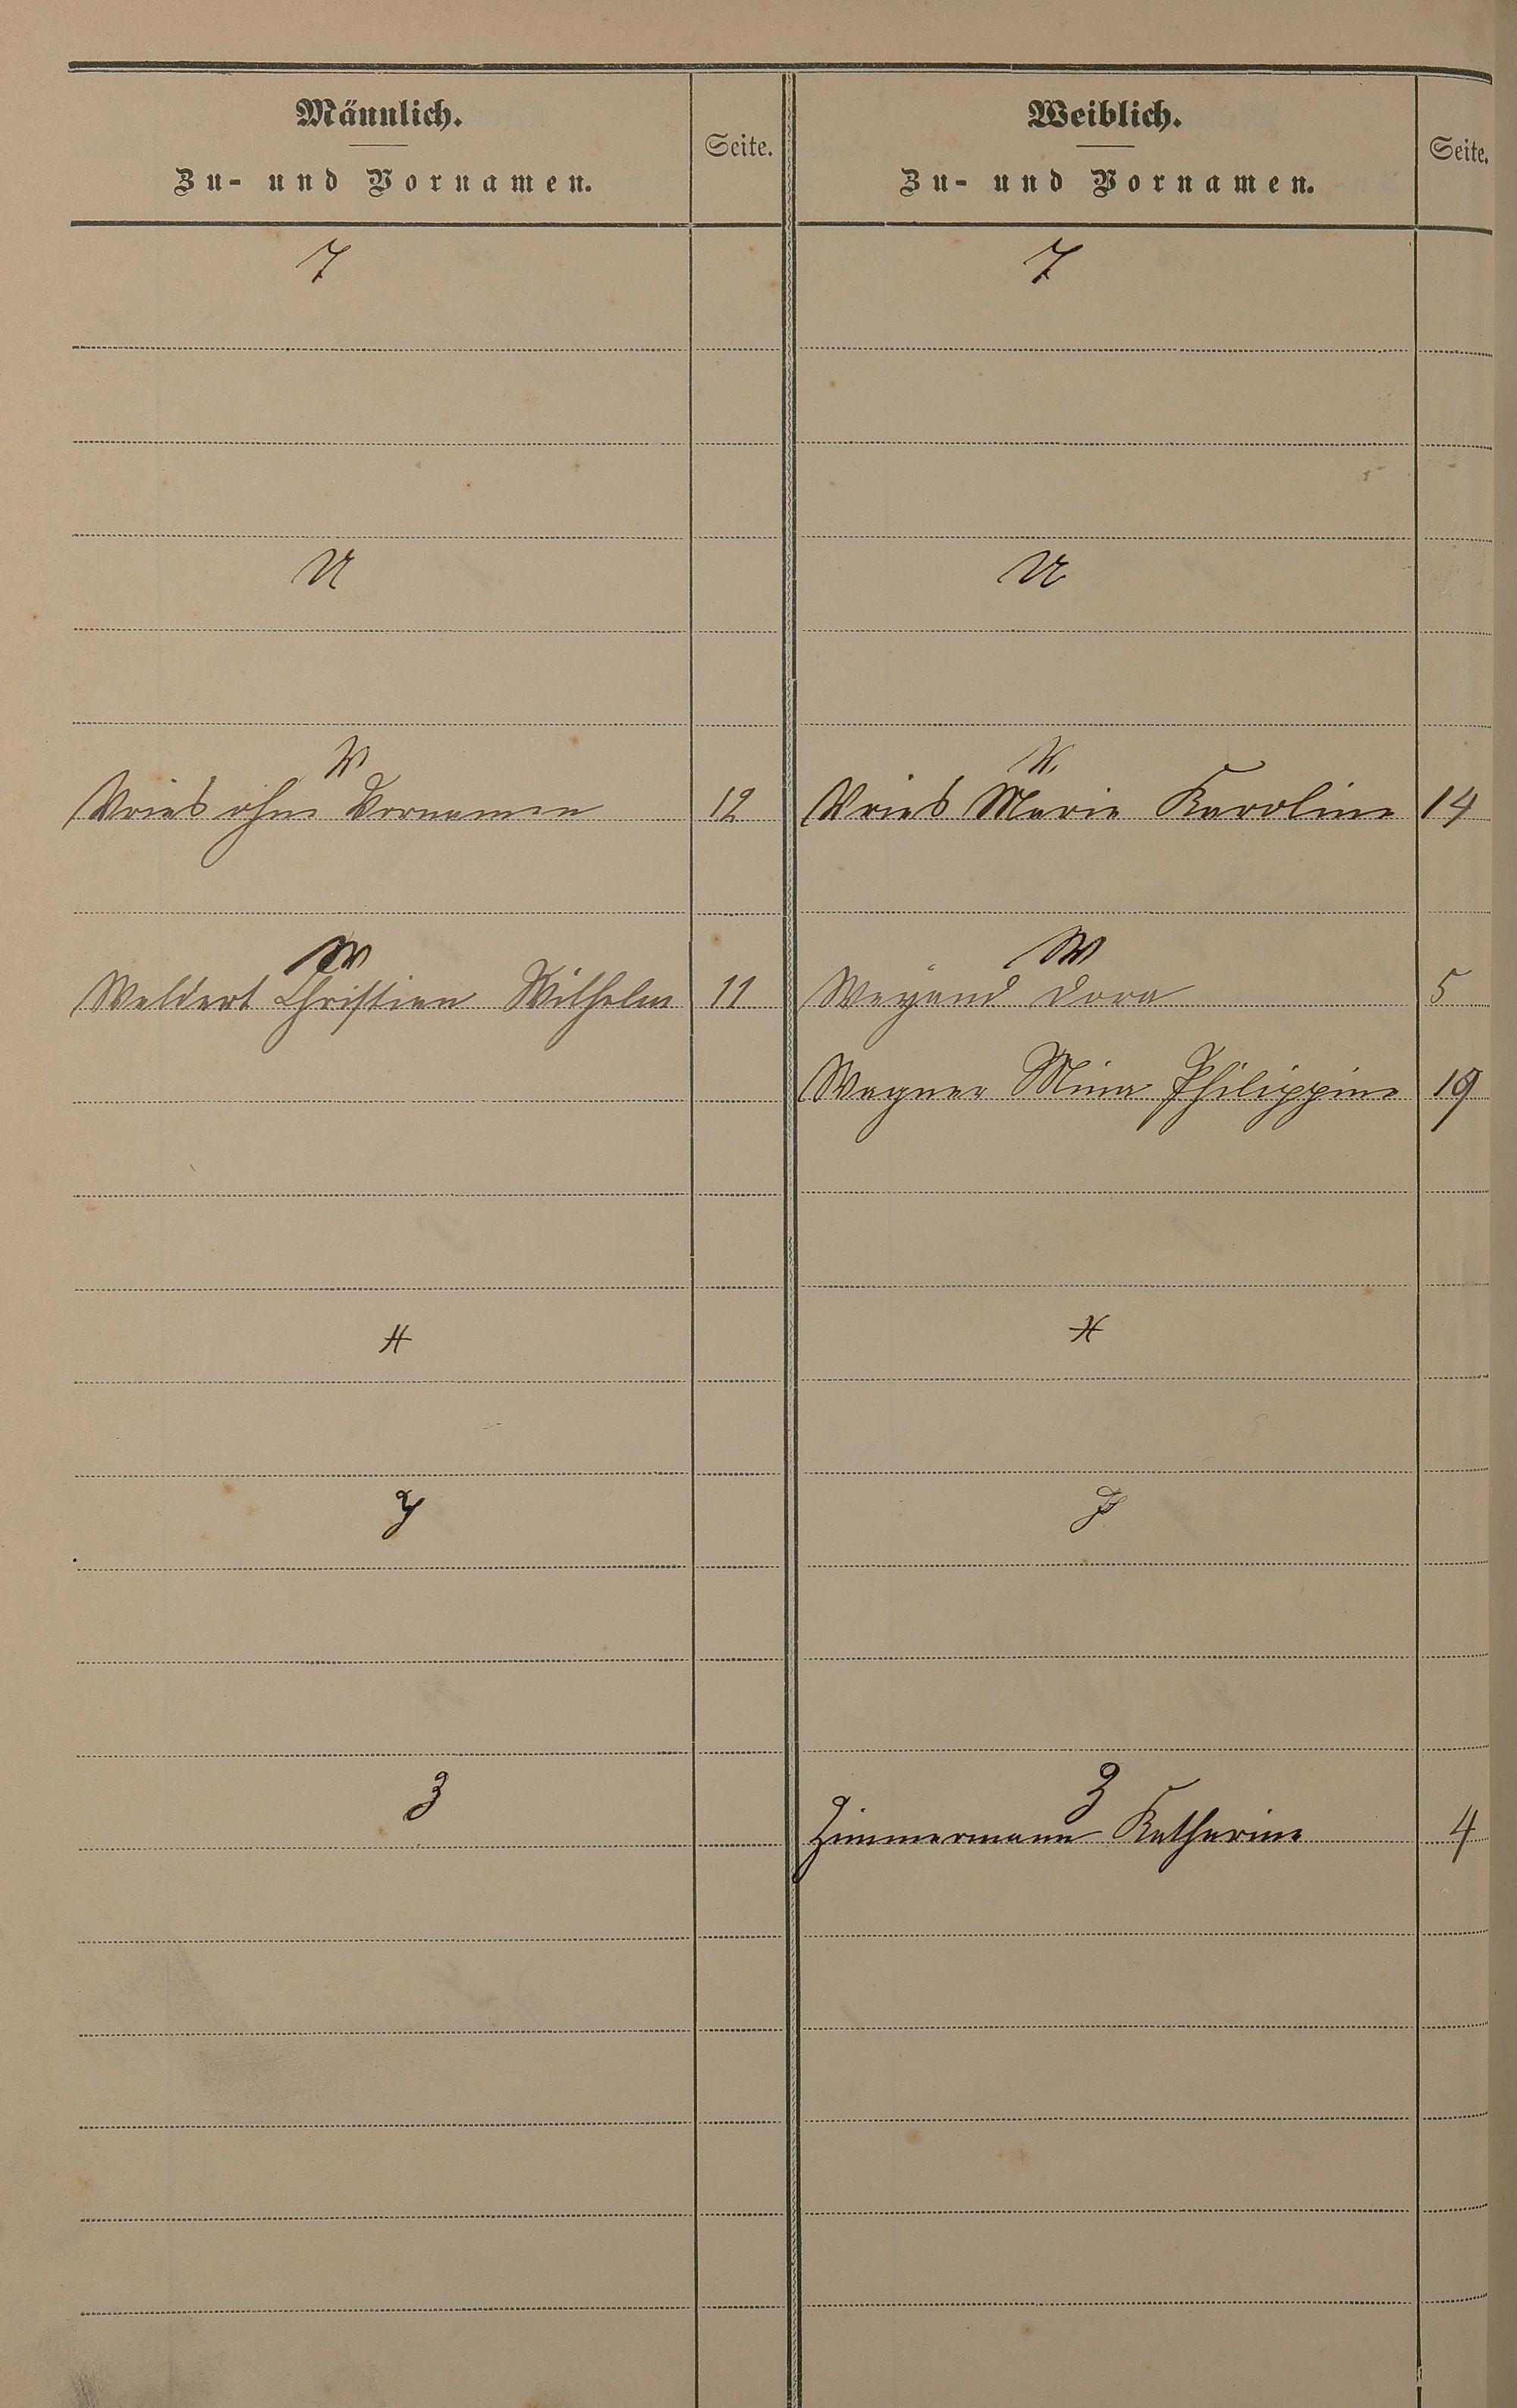 Männlich.
Zu- und Vornamen.
Seite.
Weiblich.
Zu- und Vornamen.
Seite.
T
T
U
U
V
V.
Vries ohne Vornamen 12
Vries Marie Karoline 14
W
W
Weldert Christian Wilhelm 11
Weyand Dora 5
Wagner Mina Philippine 19
X
X
Y
Y
Z
Z
Zimmermann Katharine 4